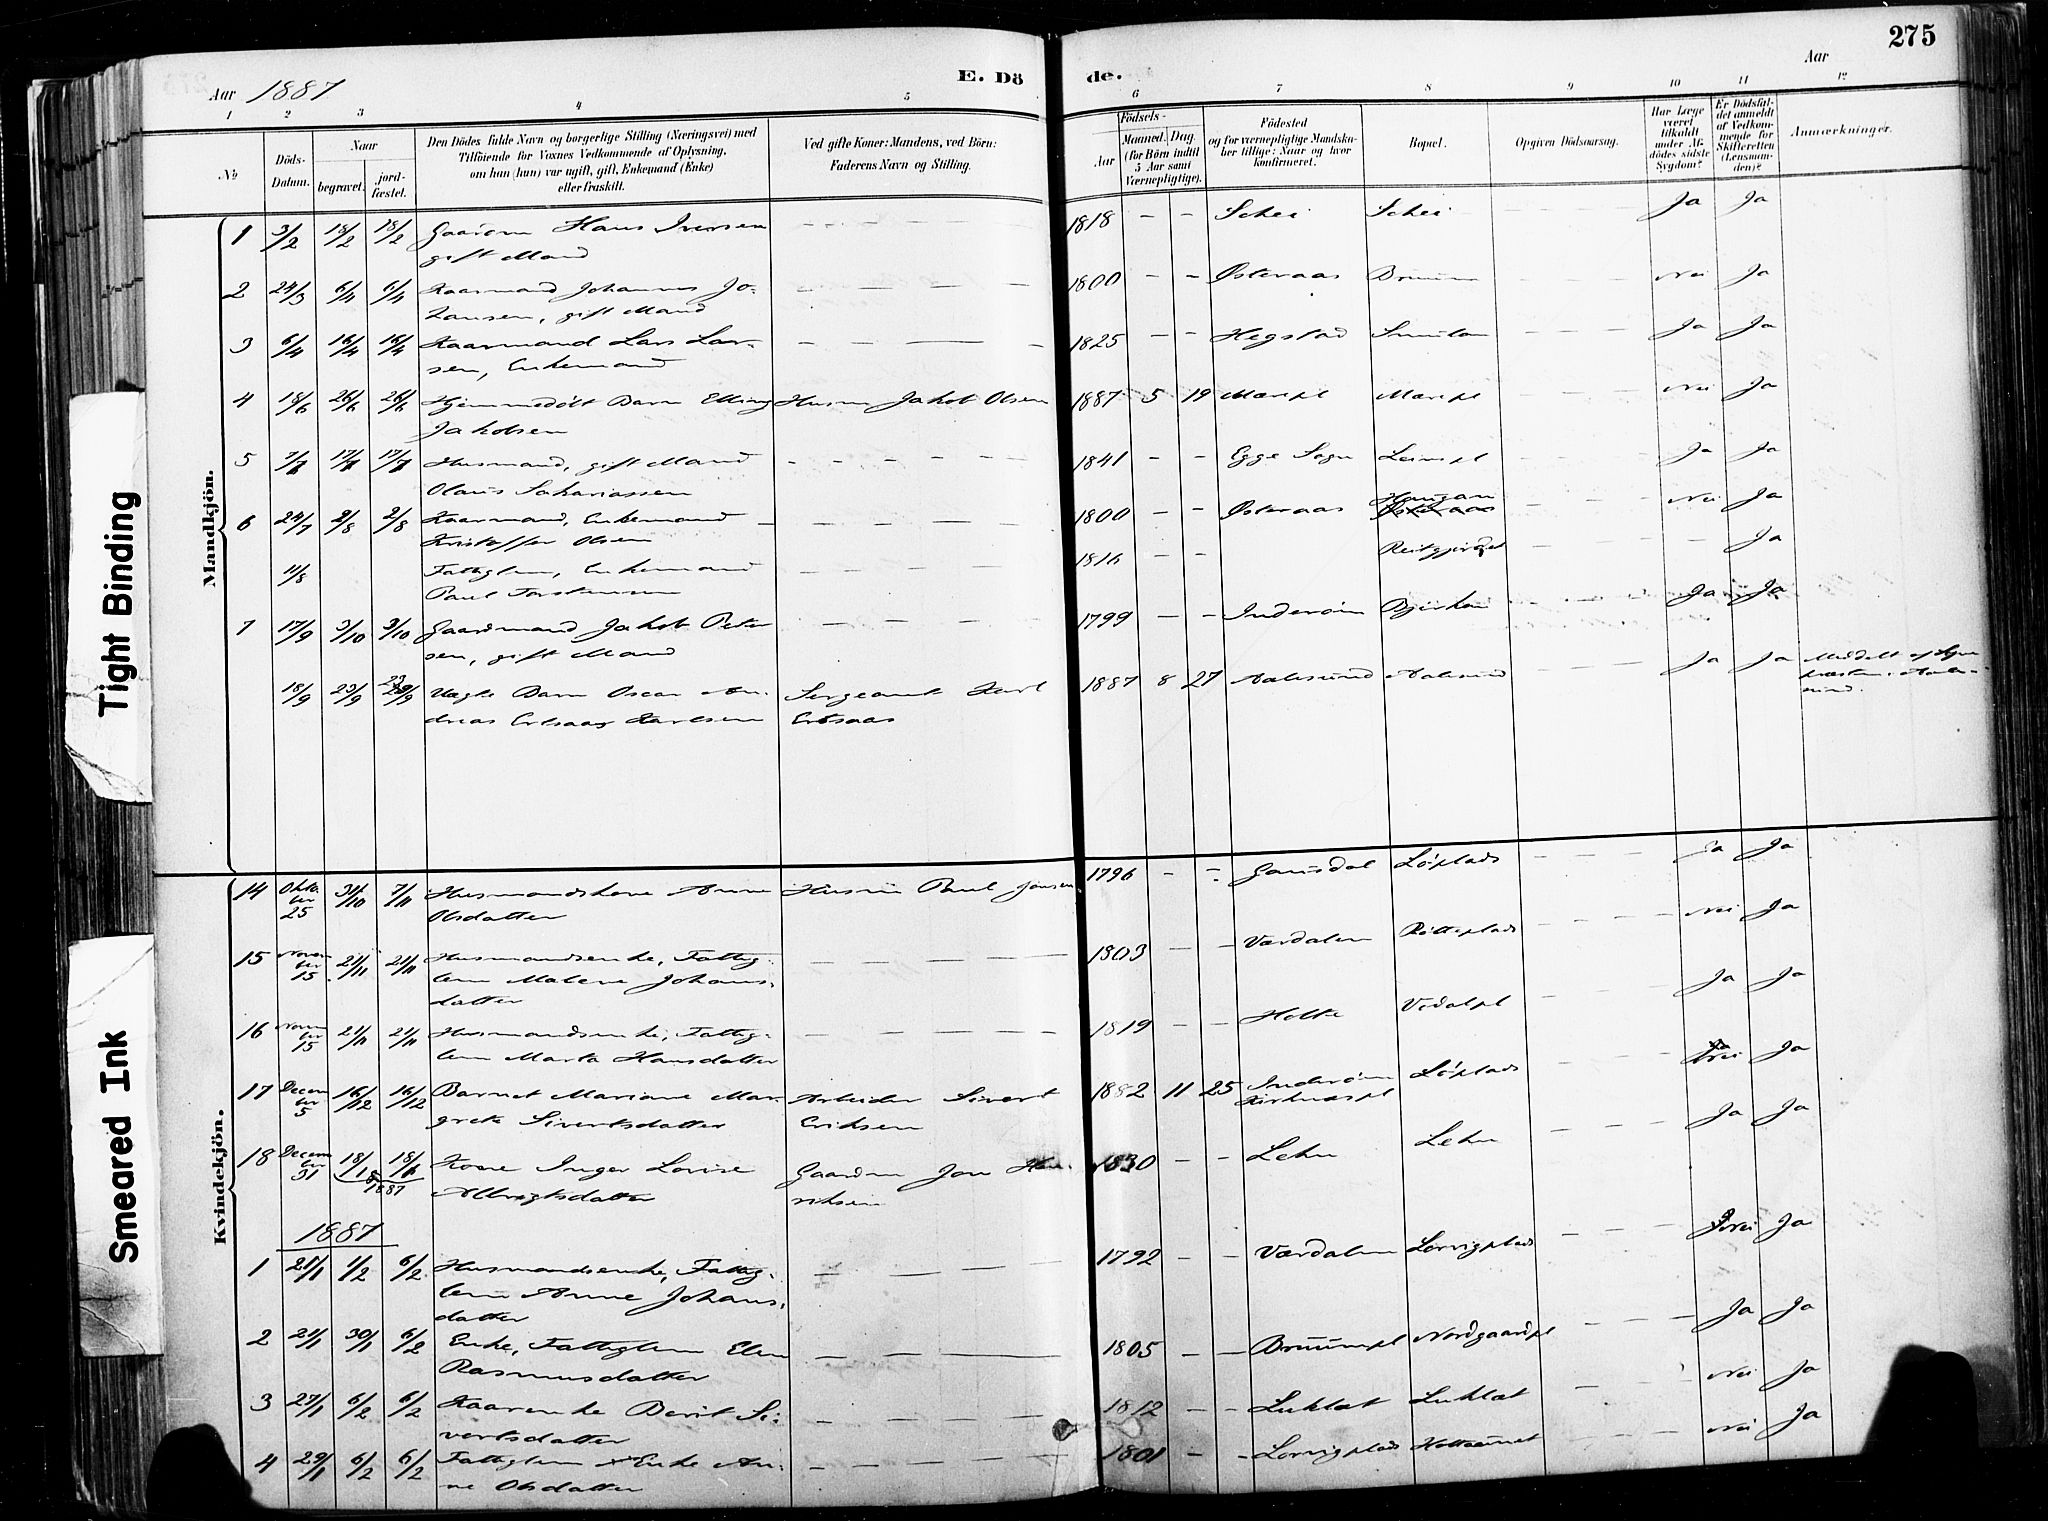 275
Aar 1887
E. Dö
de.
Aar
1 2 3 4 5
6 7 8 9 10 11 12
№
Döds-
Datum.
Naar
begravet.
jord-
fæstet.
Den Dödes fulde Navn og borgerlige Stilling (Næringsvei) med
Tilföiende for Voxnes Vedkommende af Oplysning,
om han (hun) var ugift, gift, Enkemand (Enke)
eller fraskilt.
Ved gifte Koner: Mandens, ved Börn:
Faderens Navn og Stilling.
Födsels-
Aar
Maaned. Dag.
(for Börn indtil
5 Aar samt
Værnepligtige).
Födested
og for værnepligtige Mandska-
ber tillige: Naar og hvor
konfirmeret.
Bopæl.
Opgiven Dödsaarsag.
Har Læge
været
tilkaldt
under Af-
dödes sidste
Sygdom?
Er Dödsfal-
det anmeldt
af Vedkom-
mende for
Skifteretten
(Lensman-
den)?
Anmærkninger.
Mandkjön.
1 3/2 18/2 18/2 Gaardm Hans Iversen - - - - 1818 - - Schei Schei - - - Ja Ja
gift Mand
2 24/3 6/4 6/4 Kaarmand Johannes Jo- - - - - 1800 - - Østeraas - - - Nei Ja
hansen, gift Mand
3 6/4 16/4 16/4 Kaarmand Lars Lar- - - - - 1825 - - Hegstad - - - Ja Ja
sen, Enkemand
4 18/6 26/6 26/6 Hjemmedöbt Barn Elling Husm Jakob Olsen 1887 5 19 Marepl Marepl - - - Nei Ja
Jakobsen
5 17/8 17/8 Husmand, gift Mand - - - - 1841 - - Egge Sogn Leinspl - - - Ja Ja
Olaus Sakariassen
Haugan
6 24/7 2/8 2/8 Kaarmand, Enkemand - - - - 1800 - - Østeraas Østeraas - - - Nei Ja
Kristoffer Olsen
11/8 Fattiglem, Enkemand - - - - 1816 - - Reitgjerdet - - - Ja
Paul Torstensen
7 17/9 3/10 3/10 Gaardmand Jakob Peter - - - - 1799 - - Inderöen - - - Ja Ja
sen, gift Mand
18/9 23/9 23/9 Oscar An- Sergeant Karl 1887 8 27 Aalesund Aalesund Ja Ja Meddelt af Sogne
dreas Ertsaas Karlsen Ertsaas
præsten i Aale-
sund.
Kvindekjön.
14 Okto
ber
25 31/10 7/11 Husmandskone Anne Husm Paul Jonsen 1796 - - Gausdal Löplads - - - Ja Ja
Olsdatter
15 Novem
ber
15 21/11 21/11 Husmandsenke, Fattig- - - - - 1803 - - Værdalen - - - Nei Ja
lem Malene Johans-
datter
16 Novem
ber
15 21/11 21/11 Husmandsenke, Fattig- - - - - 1819 - - Holte - - - Ja Ja
lem Marta Hansdatter
17 Decem
ber
5 16/12 16/12 Barnet Mariane Mar- Arbeider Sivert 1882 11 25 Inderöen Löplads - - - Nei Ja
grete Sivertsdatter Eriksen
18 Decem
ber
31 18/1 18/1 Kone Inger Lovise Gaardm Jon Hen- 1830 - - Lehn Lehn - - - Ja Ja
1887
Albrigtsdatter riksen
1887
1 21/1 1/2 6/2 Husmandsenke, Fattig- - - - - 1792 - - Værdalen Lorvigplads - - - Nei Ja
lem Anne Johans-
datter
2 21/1 30/1 6/2 Enke, Fattiglem Elen - - - - 1805 - - Nordgaardpl - - - Ja Ja
Rasmusdatter
3 27/1 6/2 6/2 Kaarenke Berit Si- - - - - 1812 - - - - Nei Ja
vertsdatter
4 29/1 6/2 6/2 Fattiglem Enke An- - - - - 1801 - - Lorvigplads - - - Nei Ja
ne Olsdatter
Tight Binding
Smeared Ink